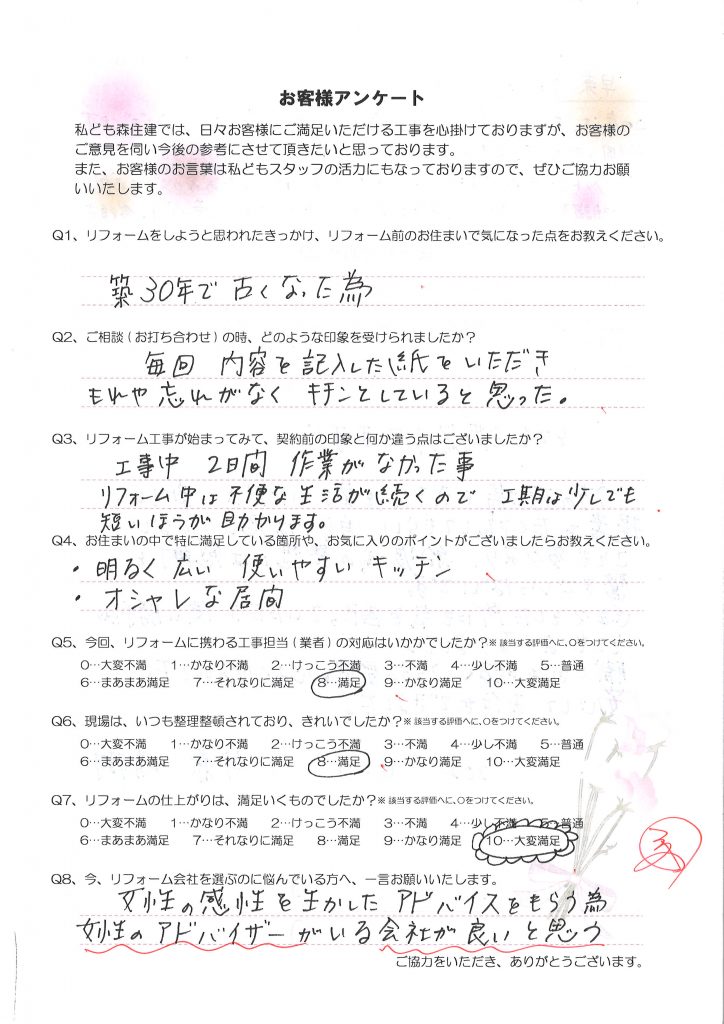 お客様アンケート
私ども森住建では、日々お客様にご満足いただける工事を心掛けておりますが、お客様の
ご意見を伺い今後の参考にさせて頂きたいと思っております。
また、お客様のお言葉は私どもスタッフの活力にもなっておりますので、ぜひご協力お願
いいたします。
Q1、リフォームをしようと思われたきっかけ、リフォーム前のお住まいで気になった点をお教えください。
築30年で古くなった為
Q2、ご相談(お打ち合わせ)の時、どのような印象を受けられましたか?
毎回 内容を記入した紙をいただき
もれや忘れがなく キチンとしていると思った。
Q3、リフォーム工事が始まってみて、契約前の印象と何か違う点はございましたか?
工事中 2日間 作業がなかった事
リフォーム中は不便な生活が続くので 工期は少しでも
短いほうが助かります。
Q4、お住まいの中で特に満足している箇所や、お気に入りのポイントがございましたらお教えください。
・明るく広い 使いやすいキッチン
・オシャレな居間
Q5、今回、リフォームに携わる工事担当(業者)の対応はいかかでしたか?※該当する評価へに、○をつけてください。
0…大変不満 1…かなり不満 2…けっこう不満 3…不満 4…少し不満 5…普通
6…まあまあ満足 7…それなりに満足 8…満足 9…かなり満足 10…大変満足
Q6、現場は、いつも整理整頓されており、きれいでしたか?※該当する評価へに、○をつけてください。
0…大変不満 1…かなり不満 2…けっこう不満 3…不満 4…少し不満 5…普通
6…まあまあ満足 7…それなりに満足 8…満足 9…かなり満足 10…大変満足
Q7、リフォームの仕上がりは、満足いくものでしたか?※該当する評価へに、○をつけてください。
0…大変不満 1…かなり不満 2…けっこう不満 3…不満 4…少し不満 5…普通
6…まあまあ満足 7…それなりに満足 8…満足 9…かなり満足 10…大変満足
Q8、今、リフォーム会社を選ぶのに悩んでいる方へ、一言お願いいたします。
女性の感性を生かしたアドバイスをもらう為
女性のアドバイザーがいる会社が良いと思う
ご協力をいただき、ありがとうございます。